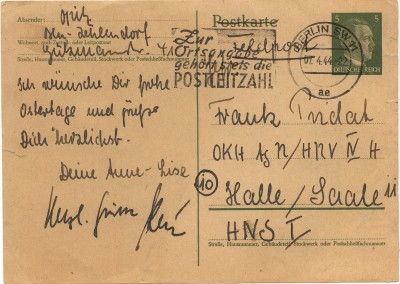 Absender:
Bln-Zehlendorf
Wohnort, auch Zustell- oder Leitpostamt
Straße, Hausnummer, Gebäudeteil, Stockwerk oder Postschließfachnummer
Ich wünsche Dir frohe
Ostertage und grüße
Dich herzlichst.
Deine Anne-Lise
Herzl. Grüsse
Postkarte
Feldpost
Zur
Ortsangabe
gehört stets die
POSTLEITZAHL
BERLIN SW 11
4.44
ae
5 5
DEUTSCHES REICH
Frank
OKH Ag N/HNV IV H
10
Halle/Saale 11
HNS I
Straße, Hausnummer, Gebäudeteil, Stockwerk oder Postschließfachnummer